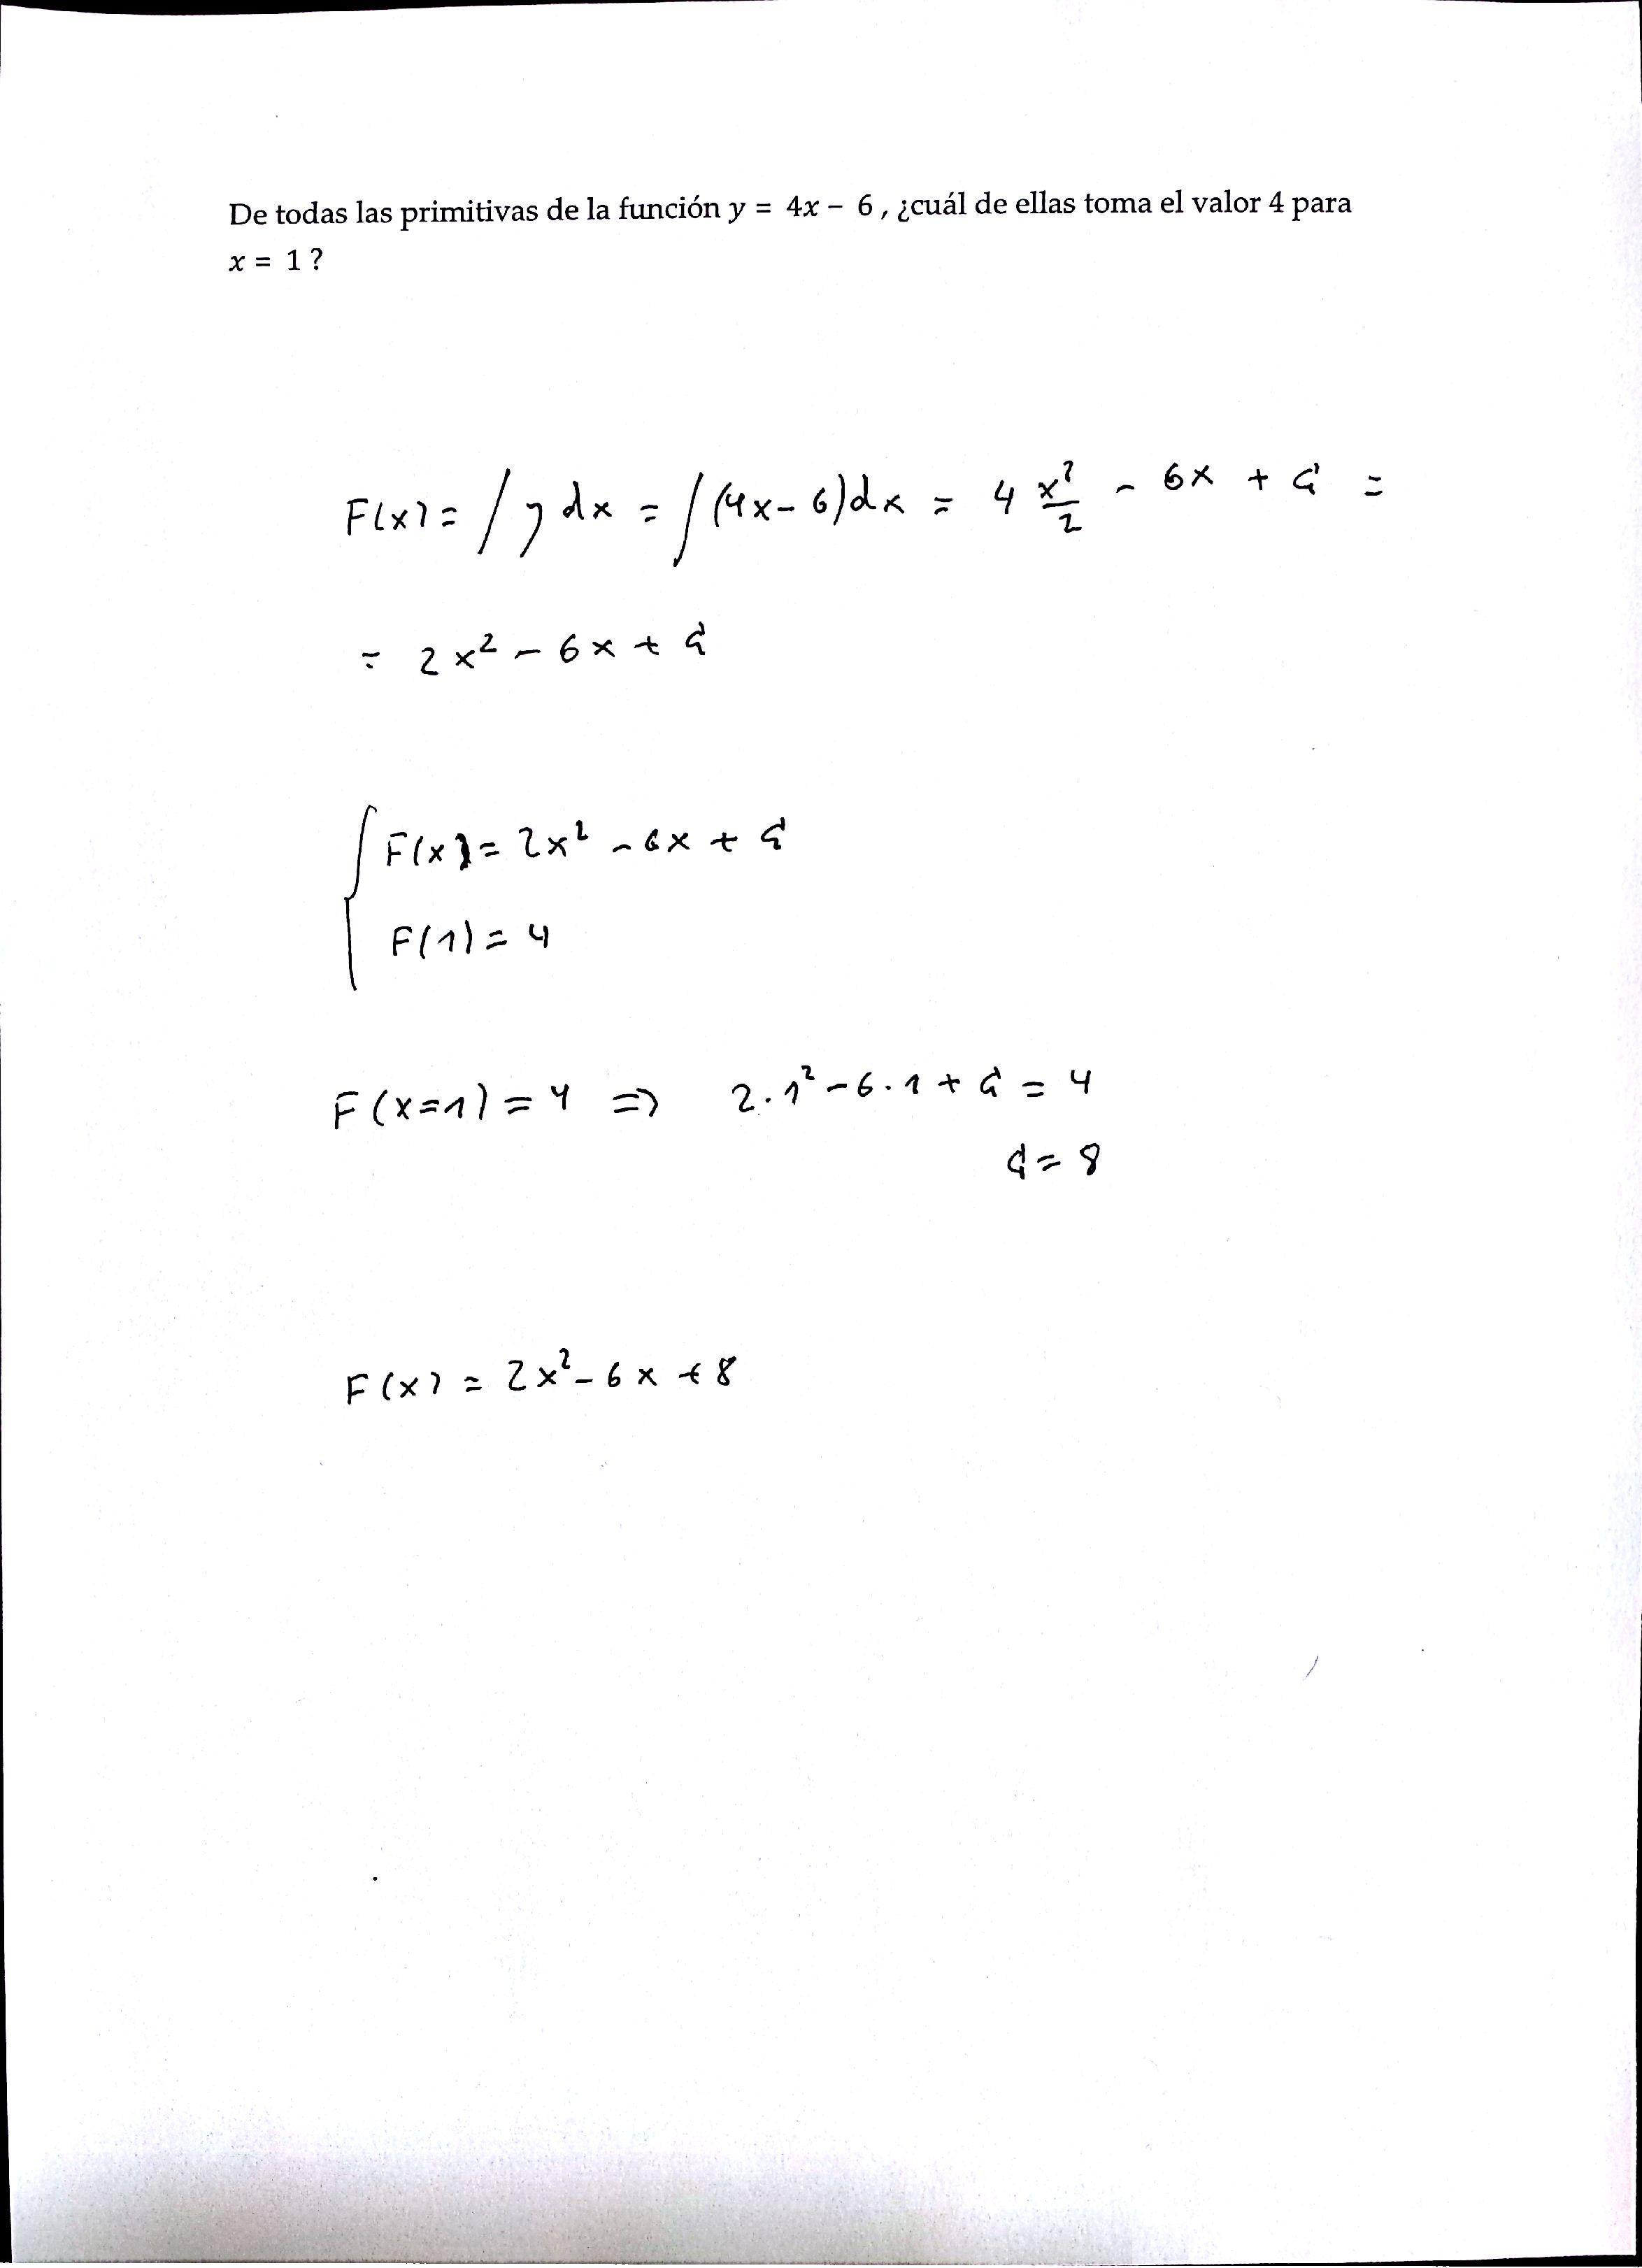 De todas las primitivas de la función y = 4x − 6 , ¿cuál de ellas toma el valor 4 para
x = 1 ?
F(x) = ∫ y dx = ∫ (4x - 6) dx = 4 x²/2 - 6x + C =
= 2x² - 6x + C
F(x) = 2x² - 6x + C
F(1) = 4
F(x=1) = 4 => 2·1² - 6·1 + C = 4
C = 8
F(x) = 2x² - 6x + 8